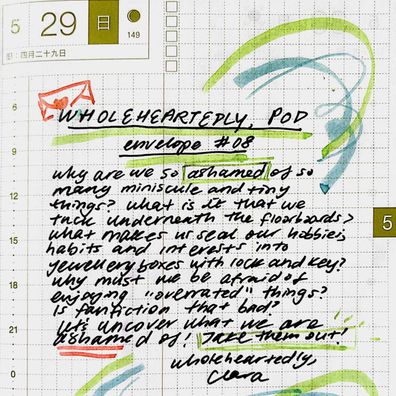 5 29 日
149
旧：四月二十九日
WHOLEHEARTEDLY, POD
envelope #08
why are we so ashamed of so
many miniscule and tiny
things? what is it that we
tuck underneath the floorboards?
what makes us seal our hobbies,
habits and interests into
jewellery boxes with lock and key?
why must we be afraid of
enjoying "overrated" things?
Is fanfiction that bad?
let's uncover what we are
ashamed of! Take them out!
wholeheartedly,
Clara
6
9
12
15
18
21
0
5